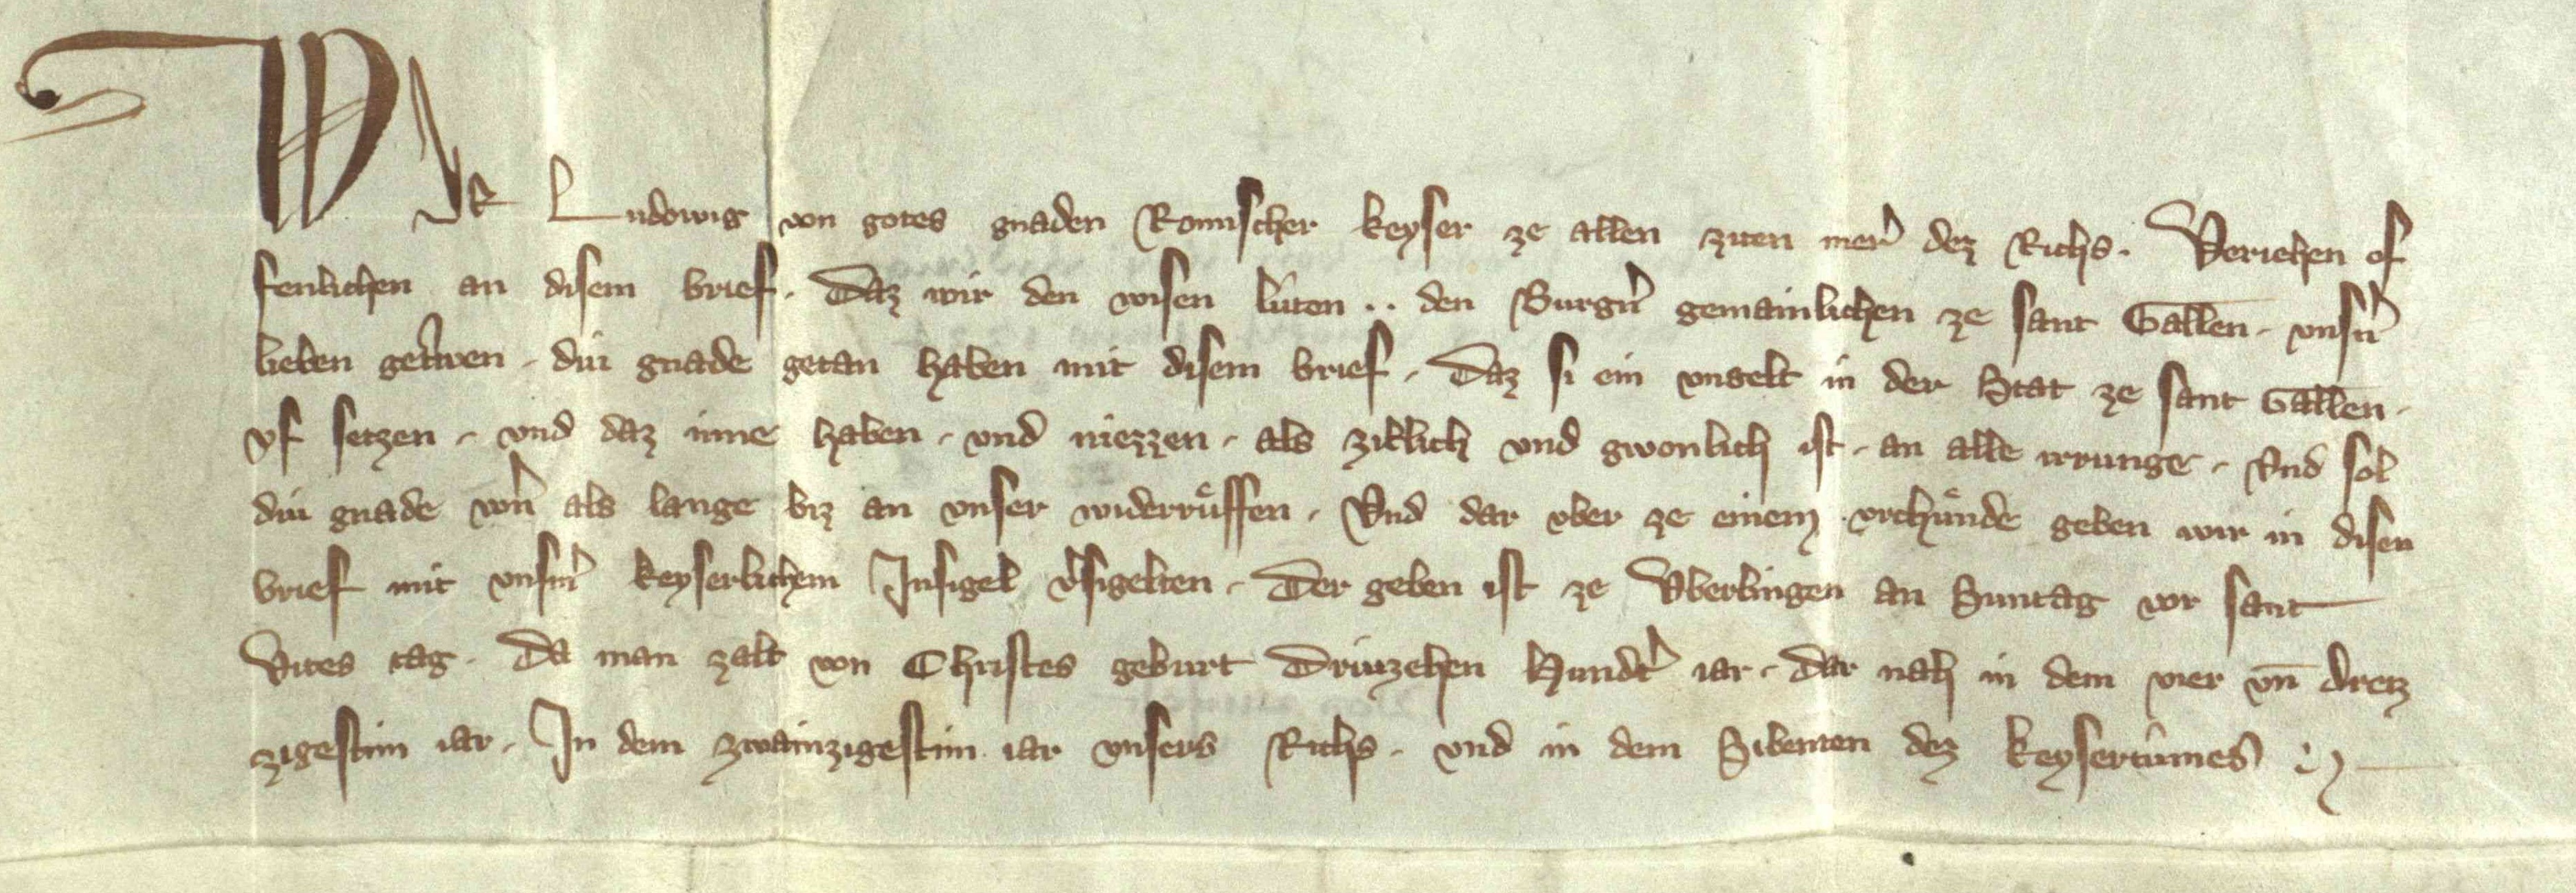 WIr Ludowig von gotes gnaden Romischer keyser ze allen ziten mer̉ dez Richs. Veriehen of
fenlichen an disem brief. Daz wir den wisen luͤten .. den Burgern̉ gemainlichen ze sant Gallen. vnsn̉
lieben getrwen. diu gnade getan haben mit disem brief. Daz si ein vngelt in der Stat ze sant Gallen.
vf setzen. vnd daz inne haben. vnd niezzen. als zitlich vnd gwonlich ist. an alle irrunge. Vnd sol
diu gnade wern̉ als lange biz an vnser widerruͤffen. Vnd dar vber ze einem vrchuͤnde geben wir in disen
brief mit vnsm̉ keyserlichem Insigel v̉sigelten. Der geben ist ze Vberlingen an Suntag vor sant
Vites tag. Da man zalt von Christes geburt Driuzehen Hundt̉ iar. dar nah in dem vier vn̄ dretz
zigestim iar. In dem zwainzigestim iar vnsers Richs. vnd in dem Sibenten dez keysertuͦmes